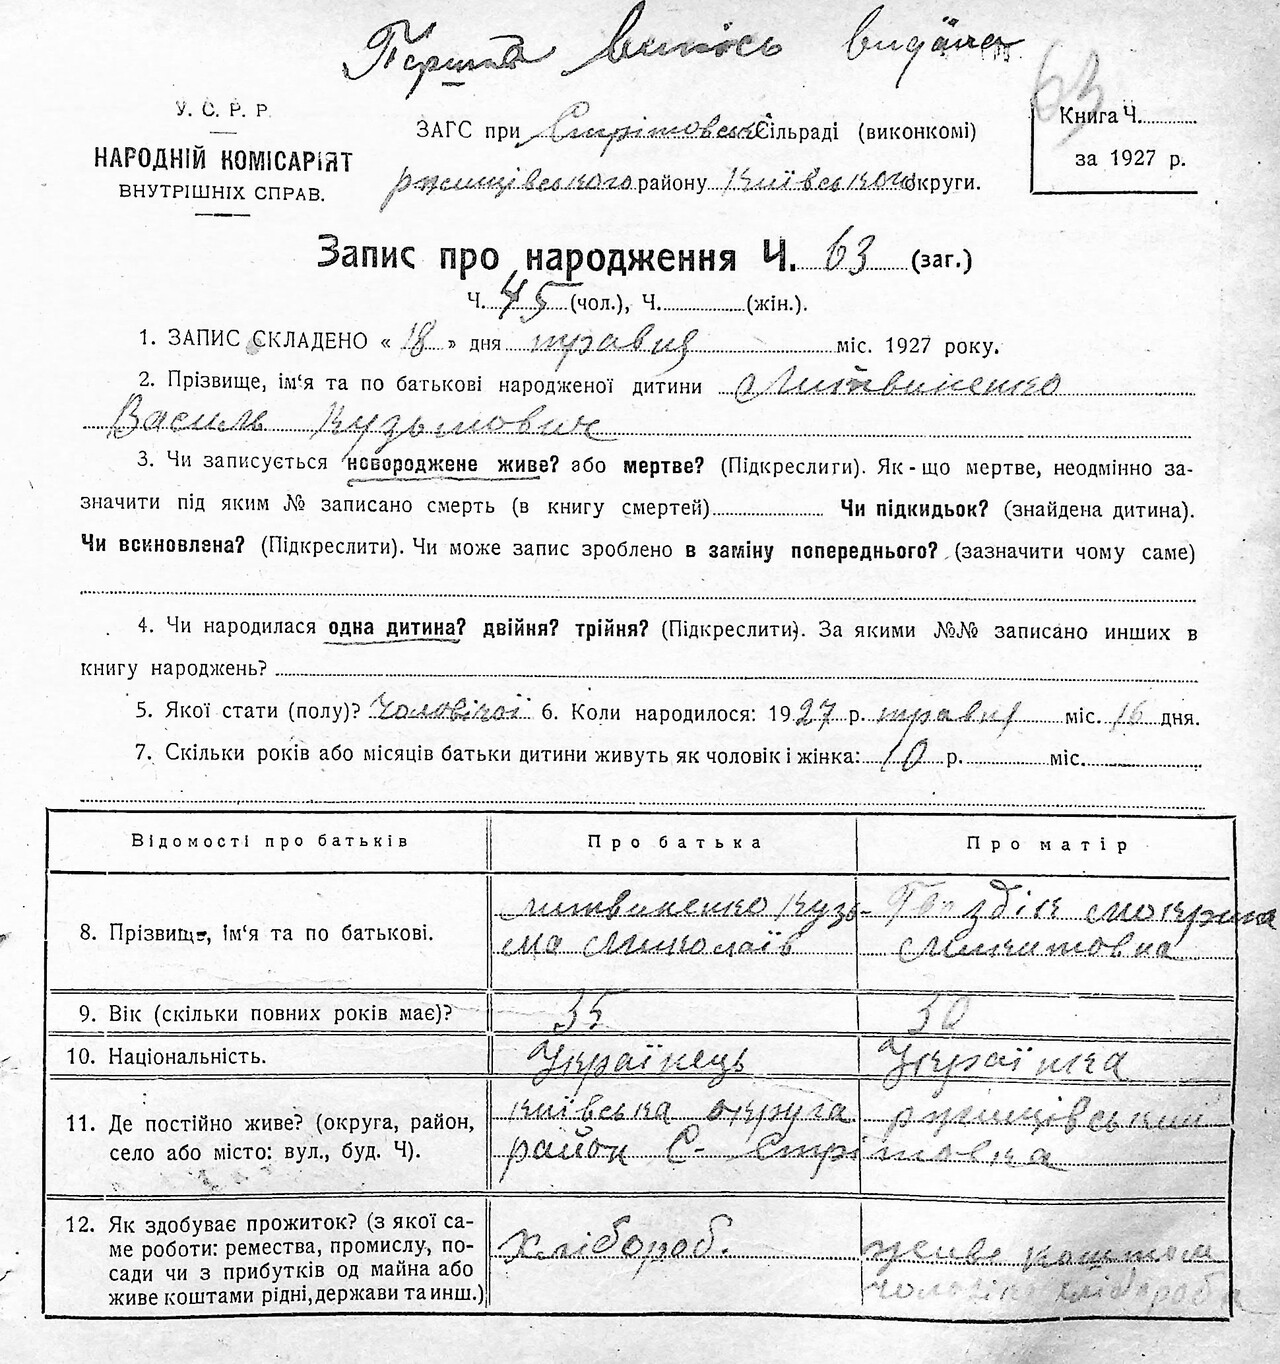 Перша випись видана
63
У. С. Р. Р.
НАРОДНІЙ КОМІСАРІЯТ
ВНУТРІШНІХ СПРАВ.
ЗАГС при Стрітовські сільраді (виконкомі)
ржищівського району Київського округи.
Книга Ч.
за 1927 р.
Запис про народження Ч. 63 (заг.)
Ч. 45 (чол.), Ч. (жін.).
1. ЗАПИС СКЛАДЕНО « 18 » дня травня міс. 1927 року.
2. Прізвище, ім‘я та по батькові народженої дитини Литвиненко
Василь Кузьмович
3. Чи записується новороджене живе? або мертве? (Підкреслиги). Як-що мертве, неодмінно за-
значити під яким № записано смерть (в книгу смертей) Чи підкидьок? (знайдена дитина).
Чи всиновлена? (Підкреслити). Чи може запис зроблено в заміну попереднього? (зазначити чому саме)
4. Чи народилася одна дитина? двійня? трійня? (Підкреслити). За якими №№ записано инших в
книгу народжень?
5. Якої стати (полу)? Чоловічої 6. Коли народилося: 1927 р. травня міс. 16 дня.
7. Скільки років або місяців батьки дитини живуть як чоловік і жінка: 10 р. міс.
Відомості про батьків Про батька Про матір
8. Прізвище, ім‘я та по батькові.
Литвиненко Кузь-
ма Миколаїв
здік Мокрина
Микитовна
9. Вік (скільки повних років має)? 35 30
10. Національність. Українець Українка
11. Де постійно живе? (округа, район,
село або місто: вул., буд. Ч).
київська округа ржищівський
район С- Стрітовка
12. Як здобуває прожиток? (з якої са-
ме роботи: ремества, промислу, по-
сади чи з прибутків од майна або
живе коштами рідні, держави та инш.)
Хлібороб.
живе коштом
чоловіка хлібороба